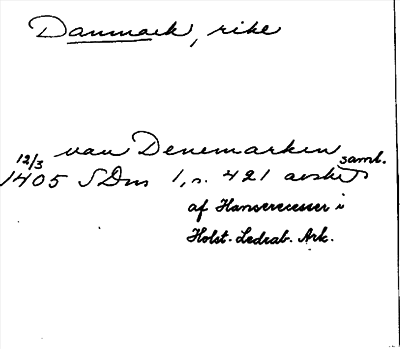 Danmark, rike
van Denemarken
12/3 samt.
1405 SDns 1, n. 421 avskr
af Hanserecesser i
Holst. Ledrab. Ark.